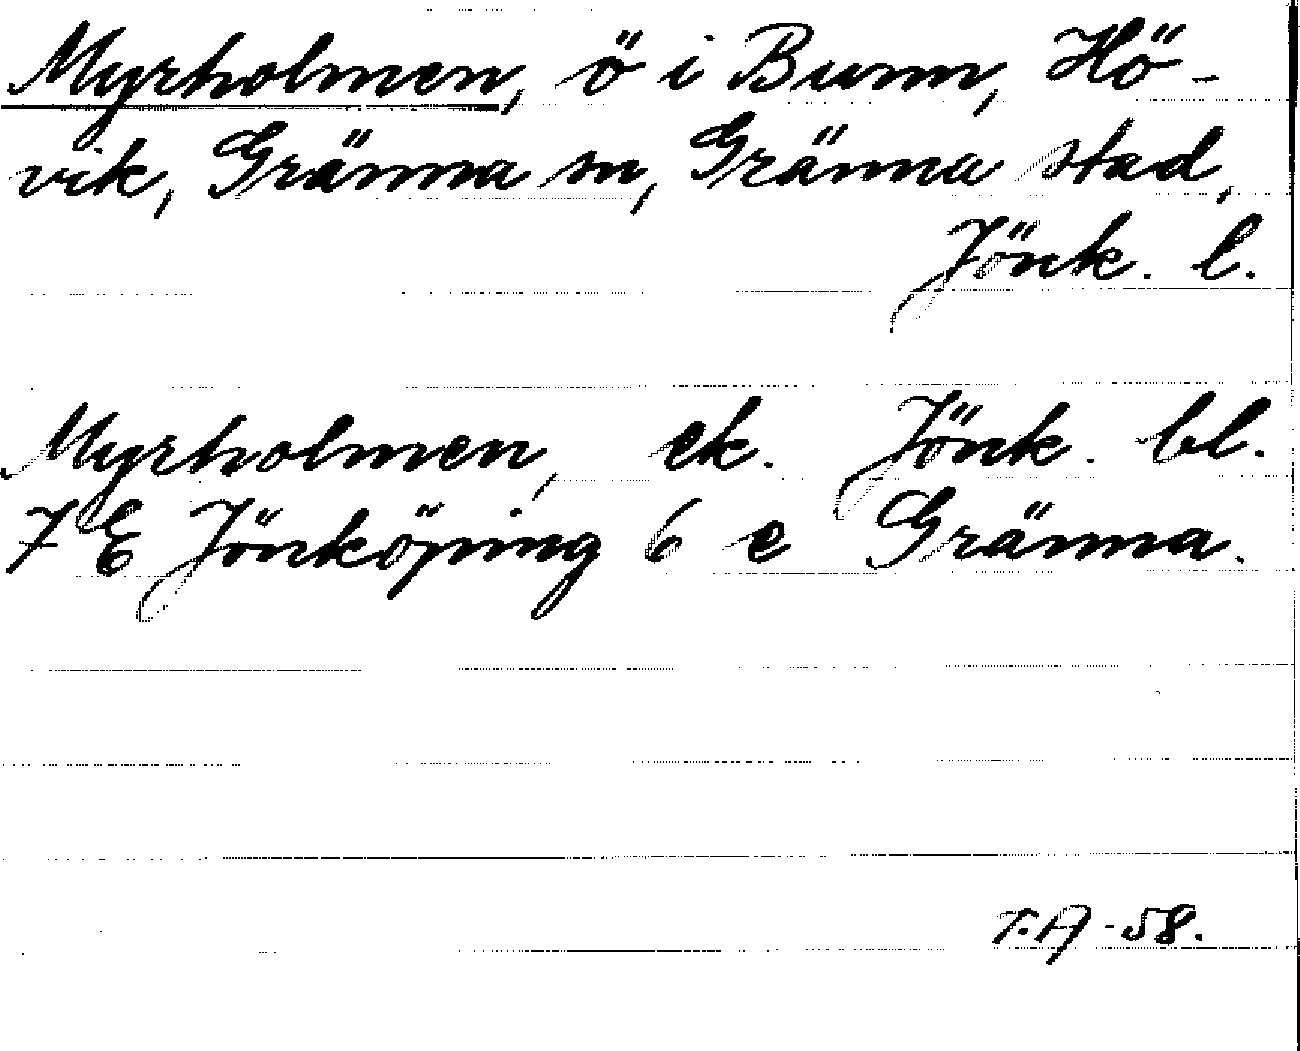 Myrholmen, ö i Bunn, Hö-
vik, Gränna sn, Gränna stad,
Jönk. l.
Myrholmen, ek. Jönk. bl.
7 E Jönköping 6 e Gränna.
T.A -58.